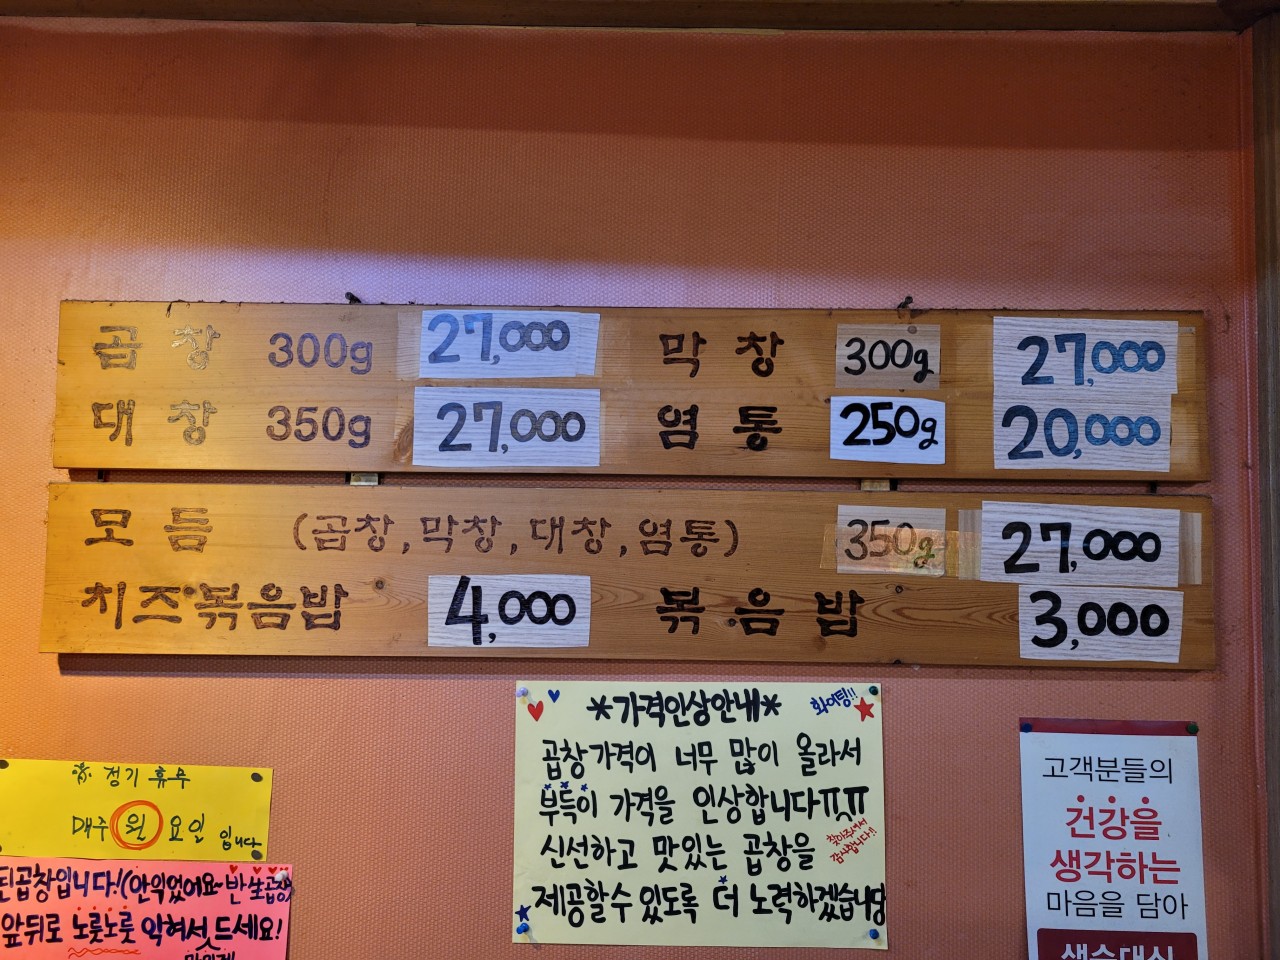 곱창 300g 27,000 막창 300g 27,000
대창 350g 27,000 염통 250g 20,000
모듬 (곱창,막창,대창,염통) 350g 27,000
치즈볶음밥 4,000 볶음밥 3,000
*가격인상안내* 화이팅!!
곱창가격이 너무 많이 올라서
부득이 가격을 인상합니다ㅠㅠ
신선하고 맛있는 곱창을
제공할수 있도록 더 노력하겠습니당
찾아주셔서
감사합니다!!
정기 휴무
매주 월요일 입니다
된곱창입니다!(안익었어요~반生곱창)
앞뒤로 노릇노릇 익혀서 드세요!
고객분들의
건강을
생각하는
마음을 담아